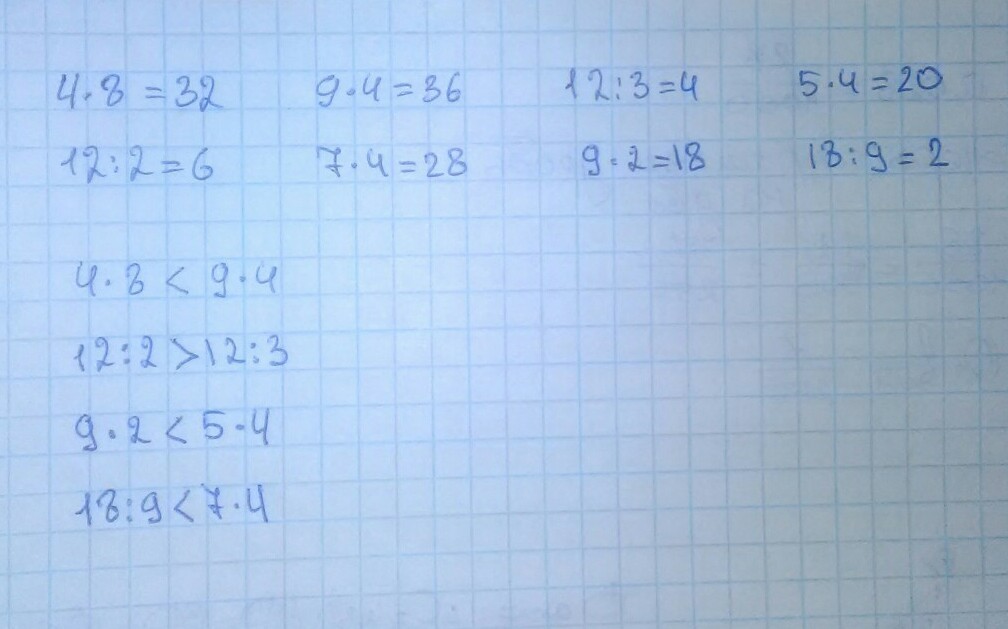 4·8 = 32 9·4 = 36 12:3=4 5·4 = 20
12:2=6 7·4 = 28 9·2=18 18:9 = 2
4·8 < 9·4
12:2 > 12:3
9·2 < 5·4
18:9 < 7·4